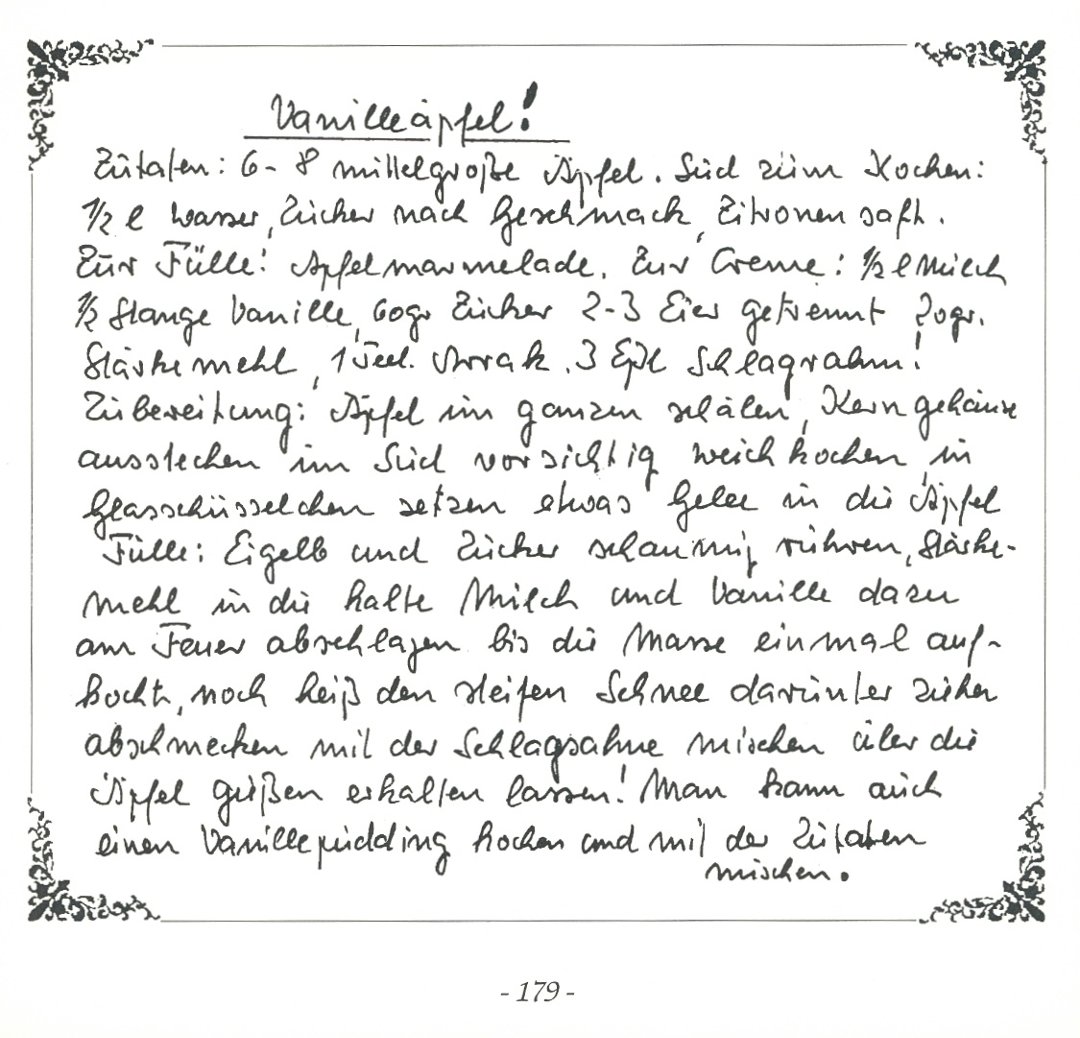 Vanilleäpfel!
Zutaten: 6-8 mittelgroße Äpfel. Sud zum Kochen:
1/2 l Wasser, Zucker nach Geschmack, Zitronensaft.
Zur Fülle: Apfelmarmelade. Zur Creme: 1/2 l Milch
1/2 Stange Vanille, 60gr Zucker 2-3 Eier getrennt 20gr.
Stärkemehl, 1 Teel. Arrak. 3 Eßl Schlagrahm!
Zubereitung: Äpfel im ganzen schälen, Kerngehäuse
ausstechen im Sud vorsichtig weich kochen in
Glasschüsselchen setzen etwas Gelee in die Äpfel
Fülle: Eigelb und Zucker schaumig rühren, Stärke-
mehl in die kalte Milch und Vanille dazu
am Feuer abschlagen bis die Masse einmal auf-
kocht, noch heiß den steifen Schnee darunter ziehen
abschmecken mit der Schlagsahne mischen über die
Äpfel gießen erkalten lassen! Man kann auch
einen Vanillepudding kochen und mit der Zutaten
mischen.
- 179 -